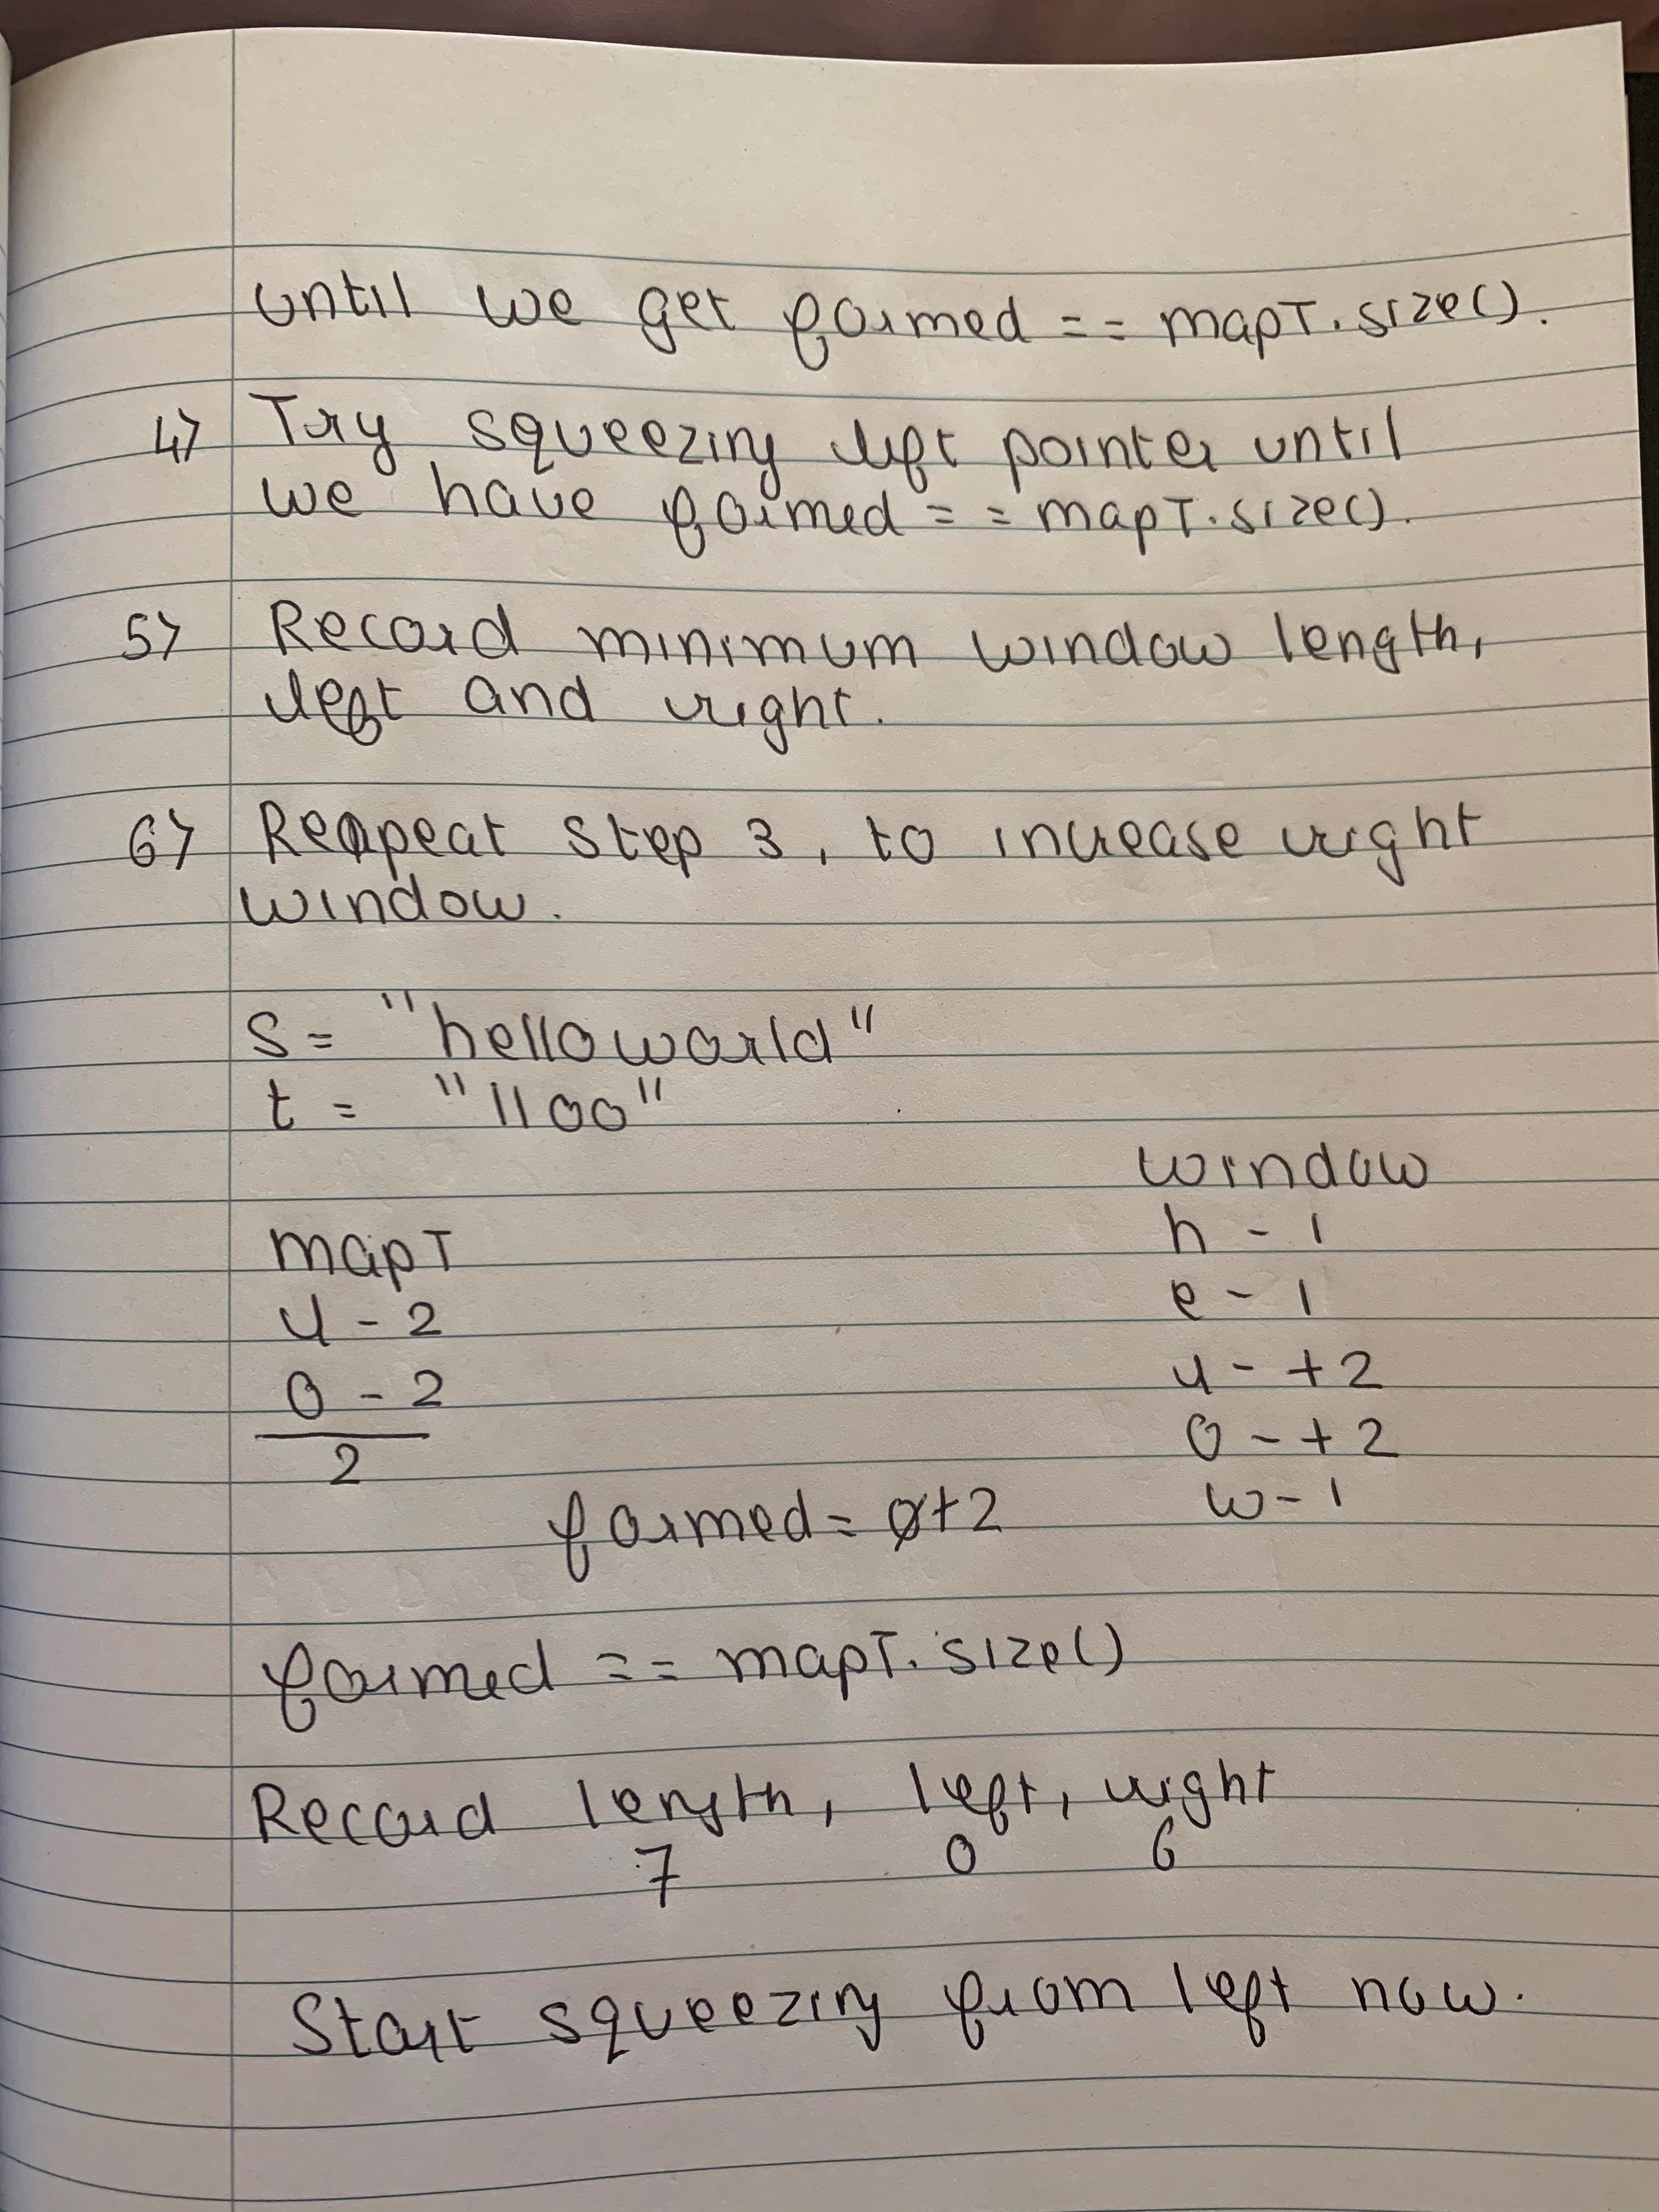 until we get formed == mapT.size().
4> Try squeezing left pointer until
we have formed == mapT.size().
5> Record minimum window length,
left and right.
6> Repeat step 3, to increase right
window.
S = "helloworld"
t = "lloo"
window
mapT h - 1
l - 2 e - 1
o - 2 l - 1 2
2 o - 1 2
formed = 0 1 2 w - 1
formed == mapT.size()
Record length, left, right
7 0 6
Start squeezing from left now.